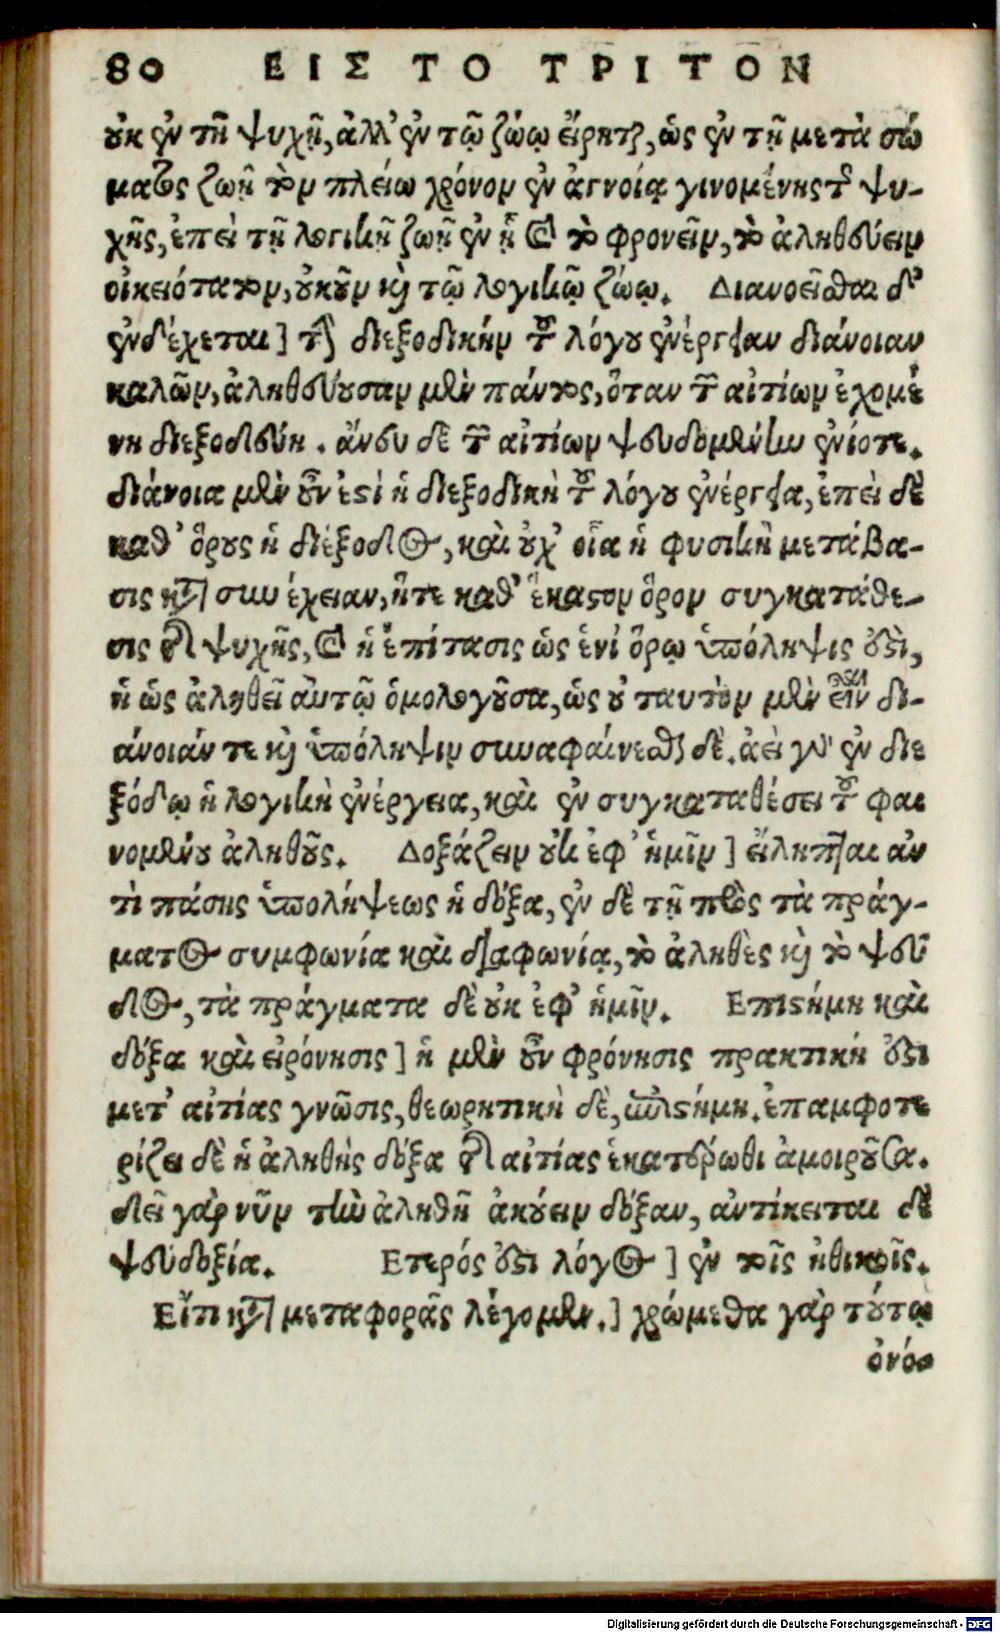 80 ΕΙΣ ΤΟ ΤΡΙΤΟΝ
οὐκ ἐν τῇ ψυχῇ, ἀλλ' ἐν τῷ ζώῳ εἴρηται, ὡς ἐν τῇ μετὰ σώ
ματος ζωῇ τὸν πλείω χρόνον ἐν ἀγνοίᾳ γινομένης τῆς ψυ-
χῆς, ἐπεὶ τῇ λογικῇ ζωῇ ἐν ᾗ καὶ τὸ φρονεῖν, τὸ ἀληθεύειν
οἰκειότατον, οὐκοῦν καὶ τῷ λογικῷ ζώῳ. Διανοεῖσθαι δ'
ἐνδέχεται] τὴν διεξοδικὴν τοῦ λόγου ἐνέργειαν διάνοιαν
καλῶν, ἀληθεύουσαν μὲν πάντως, ὅταν τῶν αἰτίων ἐχομέ
νη διεξοδεύῃ. ἄνευ δὲ τῶν αἰτίων ψευδομένην ἐνίοτε.
διάνοια μὲν οὖν ἐστὶ ἡ διεξοδικὴ τοῦ λόγου ἐνέργεια, ἐπεὶ δὲ
καθ' ὅρους ἡ διέξοδος, καὶ οὐχ' οἵα ἡ φυσικὴ μετάβα-
σις κατὰ συνέχειαν, ἥτε καθ' ἕκαστον ὅρον συγκατάθε-
σις τῆς ψυχῆς, καὶ ἡ ἐπίτασις ὡς ἑνὶ ὅρῳ ὑπόληψις ἐστὶ,
ἢ ὡς ἀληθεῖ αὐτῷ ὁμολογοῦσα, ὡς οὐ ταυτὸν μὲν εἶναι δι-
άνοιάν τε καὶ ὑπόληψιν συναφαίνεσθαι δέ. ἀεὶ γὰρ ἐν διε
ξόδῳ ἡ λογικὴ ἐνέργεια, καὶ ἐν συγκαταθέσει τοῦ φαι
νομένου ἀληθοῦς. Δοξάζειν οὐκ ἐφ' ἡμῖν] εἴληπται ἀν
τὶ πάσης ὑπολήψεως ἡ δόξα, ἐν δὲ τῇ πρὸς τὰ πράγ-
ματος συμφωνία καὶ διαφωνίᾳ, τὸ ἀληθὲς καὶ τὸ ψεῦ
δος, τὰ πράγματα δὲ οὐκ ἐφ' ἡμῖν. Επιστήμη καὶ
δόξα καὶ εἰρόνησις] ἡ μὲν οὖν φρόνησις πρακτική ἐστι
μετ' αἰτίας γνῶσις, θεωρητικὴ δὲ, ἐπιστήμη. ἐπαμφοτε
ρίζει δὲ ἡ ἀληθὴς δόξα τῆς αἰτίας ἑκατέρωθι ἀμοιροῦσα.
δεῖ γὰρ νῦν τὴν ἀληθῆ ἀκούειν δόξαν, ἀντίκειται δὲ
ψευδοξία. Ετερός ἐστι λόγος] ἐν τοῖς ἠθικοῖς.
Εἴτι κατὰ μεταφορᾶς λέγομεν.] χρώμεθα γὰρ τούτῳ
ὀνό-
Digitalisierung gefördert durch die Deutsche Forschungsgemeinschaft - DFG